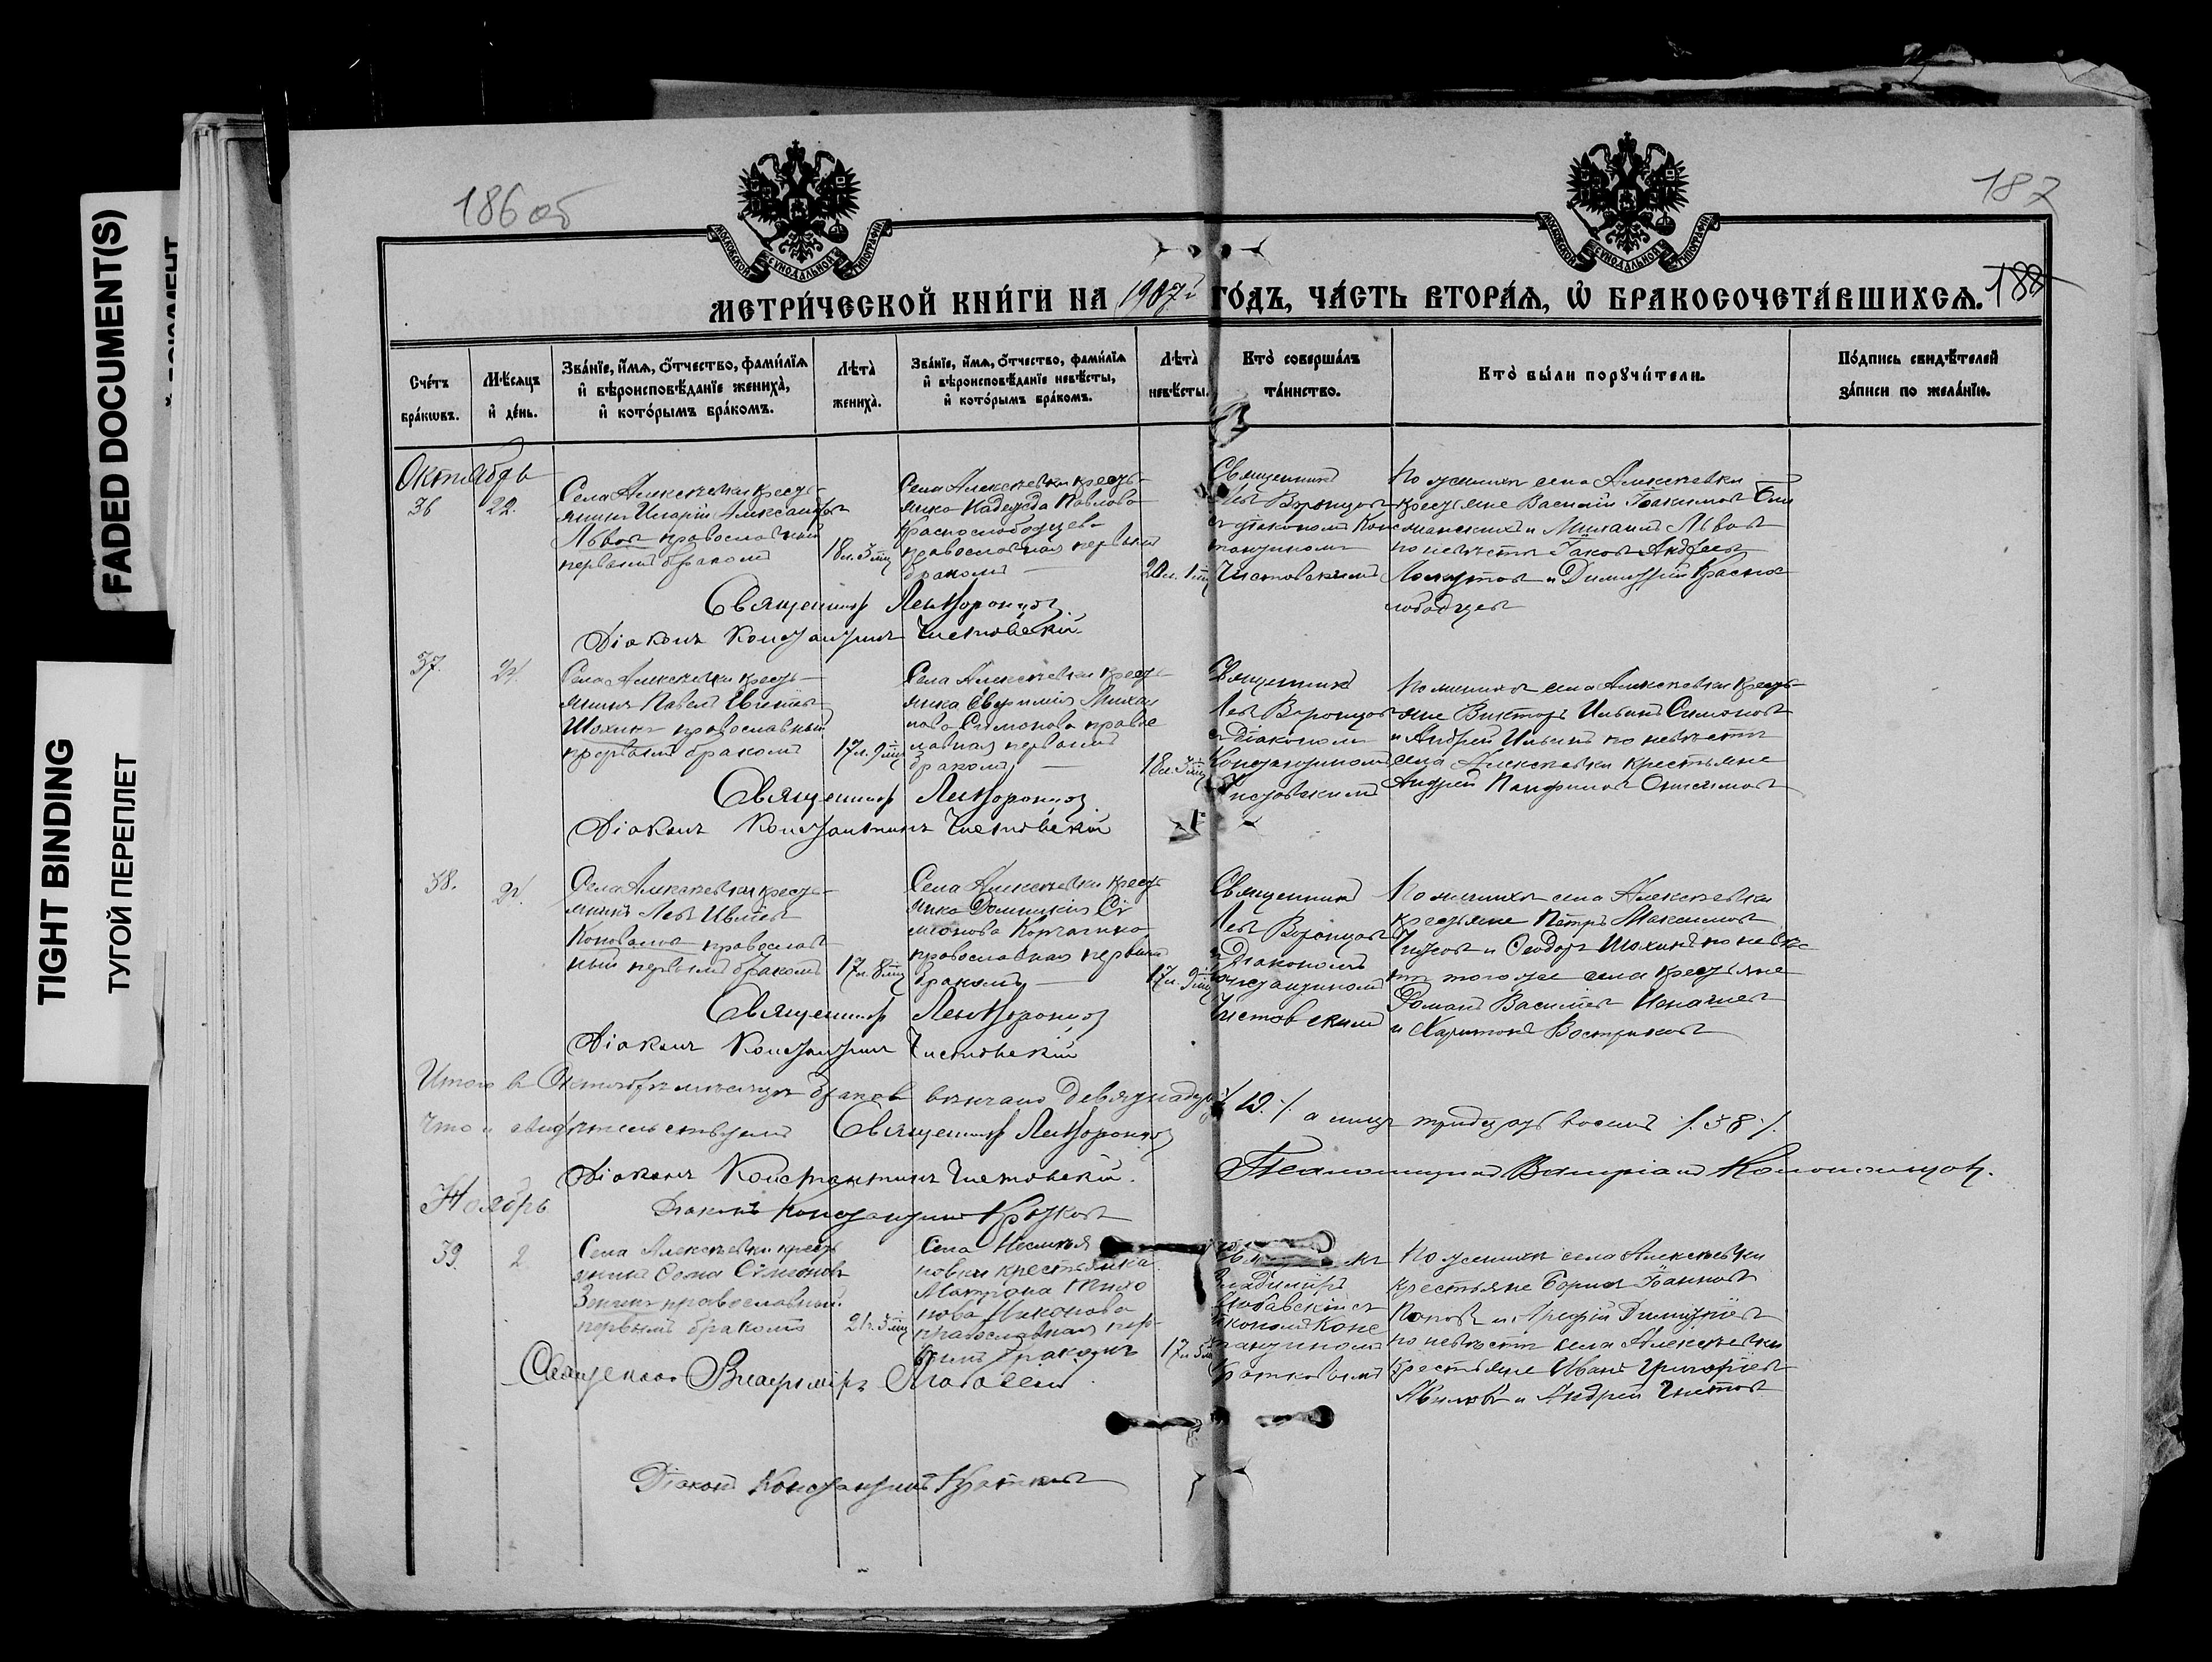 186 об
187
188
FADED DOCUMENT(S)
TIGHT BINDING
ТУГОЙ ПЕРЕПЛЕТ
МОСКОВСКОЙ СѴНОДАЛЬНОЙ ТИПОГРАФІИ
МОСКОВСКОЙ СѴНОДАЛЬНОЙ ТИПОГРАФІИ
МЕТРИ́ЧЕСКОЙ КНИ́ГИ НА 1907 й ГО́ДЪ, ЧА́СТЬ ВТОРА́Ѧ, Ѡ҆ БРАКОСОЧЕТА́ВШИХСѦ.
Сче́тъ бра́кѡвъ.
Мѣ́сѧцъ и҆ де́нь.
Зва́нїе, и҆́мѧ, ѻ҆́тчество, фами́лїѧ и҆ вѣроисповѣ́данїе жениха̀, и҆ кото́рымъ бра́комъ.
Лѣ́та̀ жениха̀.
Зва́нїе, и҆́мѧ, ѻ҆́тчество, фами́лїѧ и҆ вѣроисповѣ́данїе невѣ́сты, и҆ кото́рымъ бра́комъ.
Лѣ́та̀ невѣ́сты.
Кто̀ соверша́лъ та́инство.
Кто̀ бы́ли порꙋчи́тели.
По́дпись свидѣ́телей за́писи по жела́нїю.
Октябрь
36
22.
Села Алексѣевки кресть-
янинъ Иларій Александровъ
Львовъ православный
первымъ бракомъ
18 л. 3 мц
Села Алексѣевки кресть-
янка Надежда Павлова
Краснослободцева
православная первымъ
бракомъ
20 л. 1 мц
Священникъ
Левъ Воронцовъ
съ діакономъ Конс
тантиномъ
Чистовскимъ
По женихѣ села Алексѣевки
крестьяне Василій Іоакимовъ
и Михаилъ Львовъ
по невѣстѣ Іаковъ Андреевъ
и Димитрій Красно
слободцевъ
Священникъ Левъ Воронцовъ.
Діаконъ Константинъ Чистовскій
37.
24.
Села Алексѣевки кресть-
янинъ Павелъ
Шохинъ православный
первымъ бракомъ
17 л. 9 мц
Села Алексѣевки кресть
янка Евфимія Михаи
лова Симонова правос
лавная первымъ
бракомъ
18 л. 3 мц
Священникъ
Левъ Воронцовъ
съ діакономъ
Константиномъ
Чистовскимъ
По женихѣ села Алексѣевки кресть-
яне Викторъ Ильинъ Симоновъ
и Андрей Ильинъ по невѣстѣ
села Алексѣевки крестьяне
Андрей Панфиловъ Онисимовъ
Священникъ Левъ Воронцовъ.
Діаконъ Константинъ Чистовскій
38.
24.
Села Алексѣевки кресть-
янинъ Левъ
Коноваловъ православ
ный первымъ бракомъ
17 л. 8 мц
Села Алексѣевки кресть
янка Домникія Сѵ
меонова Корчагина
православная первымъ
бракомъ
17 л. 9 мц
Священникъ
Левъ Воронцовъ
съ діакономъ
Константиномъ
Чистовскимъ
По женихѣ села Алексѣевки
крестьяне Петръ Максимовъ
и Ѳеодоръ Шохинъ по невѣс
тѣ того же села крестьяне
Романъ Васильевъ
и Харитонъ Востриковъ
Священникъ Левъ Воронцовъ
Діаконъ Константинъ Чистовскій
Итого въ Октябрѣ мѣсяцѣ браковъ вѣнчано девятнадцать /.19./. а лицъ тридцать восемь /.38./.
Что и свидѣтельствуемъ Священникъ Левъ Воронцовъ
Діаконъ Константинъ Чистовскій.
Псаломщикъ Валеріанъ
Ноябрь
Діаконъ Константинъ Кротковъ
39.
2
Села Алексѣевки кресть
янинъ Ѳома Сѵмеоновъ
православный
первымъ бракомъ
21 л. 3 мц
Села
новки крестьянка
Матрона Тихо
нова Никонова
православная пер-
вымъ бракомъ
17 л. 5 мц
Владиміръ
съ
діакономъ Конс
тантиномъ
Кротковымъ
По женихѣ села Алексѣевки
крестьяне Борисъ Іоанновъ
Поповъ и Димитріевъ
по невѣстѣ села Алексѣевки
крестьяне Иванъ Григорьевъ
и Андрей Чистовъ
Священникъ Владиміръ
Діаконъ Константинъ Кротковъ